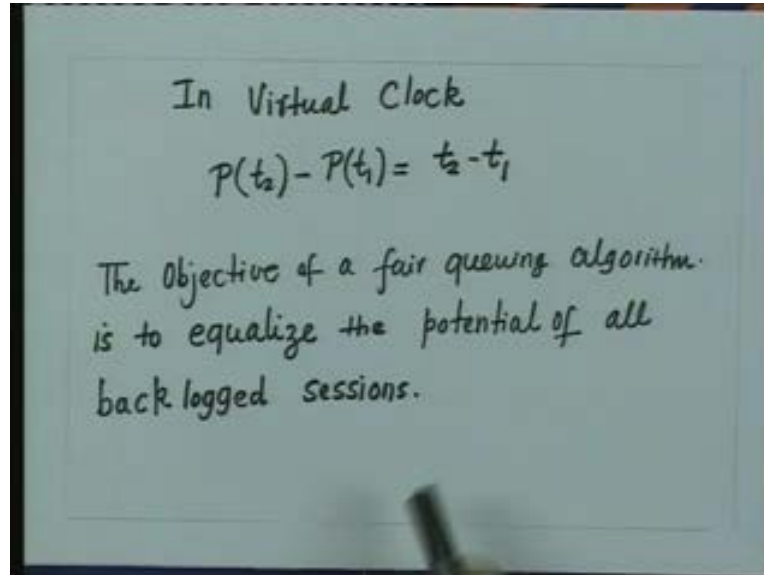 In Virtual Clock
P(t₂) - P(t₁) = t₂ - t₁
The Objective of a fair queuing algorithm.
is to equalize the potential of all
back logged sessions.